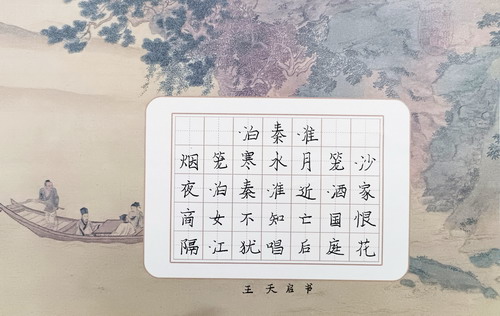 泊秦淮
烟笼寒水月笼沙
夜泊秦淮近酒家
商女不知亡国恨
隔江犹唱后庭花
王天启书